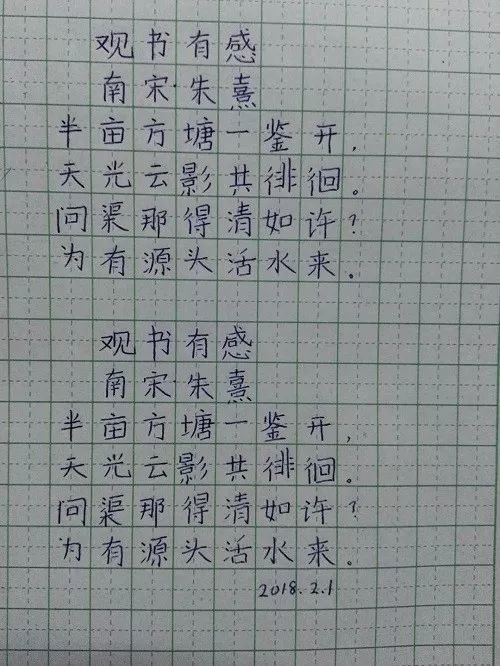 观书有感
南宋·朱熹
半亩方塘一鉴开，
天光云影共徘徊。
问渠那得清如许？
为有源头活水来。
观书有感
南宋·朱熹
半亩方塘一鉴开，
天光云影共徘徊。
问渠那得清如许？
为有源头活水来。
2018.2.1